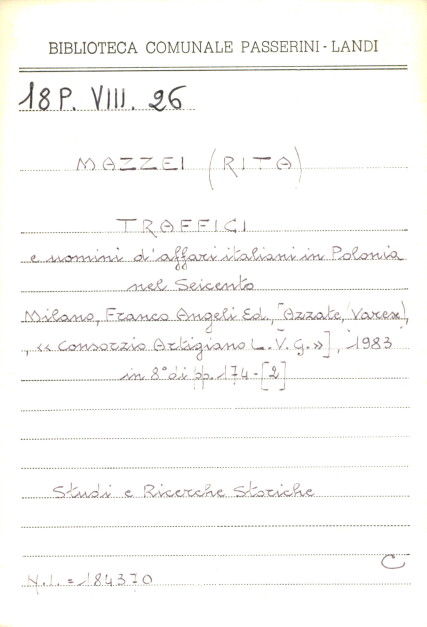 BIBLIOTECA COMUNALE PASSERINI-LANDI
18P. VIII. 26
MAZZEI (RITA)
TRAFFICI
e uomini d'affari italiani in Polonia
nel Seicento
Milano, Franco Angeli Ed., [Azzate, (Varese),
, «Consorzio Artigiano L.V.G.»], 1983
in 8° di pp. 174-[2]
Studi e Ricerche Storiche
C
N.I. = 184370